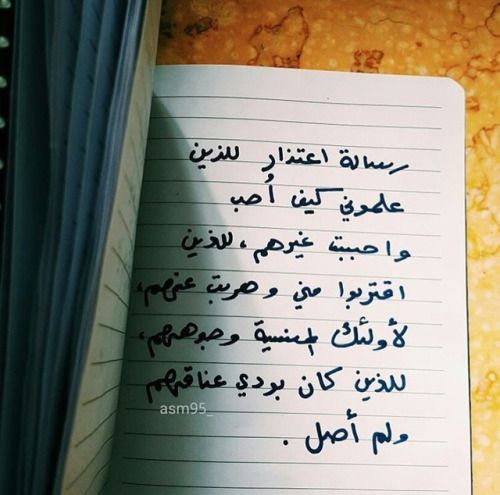 رسالة اعتذار للذين
علموني كيف أُحب
واحببت غيرهم، للذين
اقتربوا مني وهربت عنهم،
لأولئك المنسية وجوههم،
للذين كان بودي عناقهم
asm95_
ولم أصل.